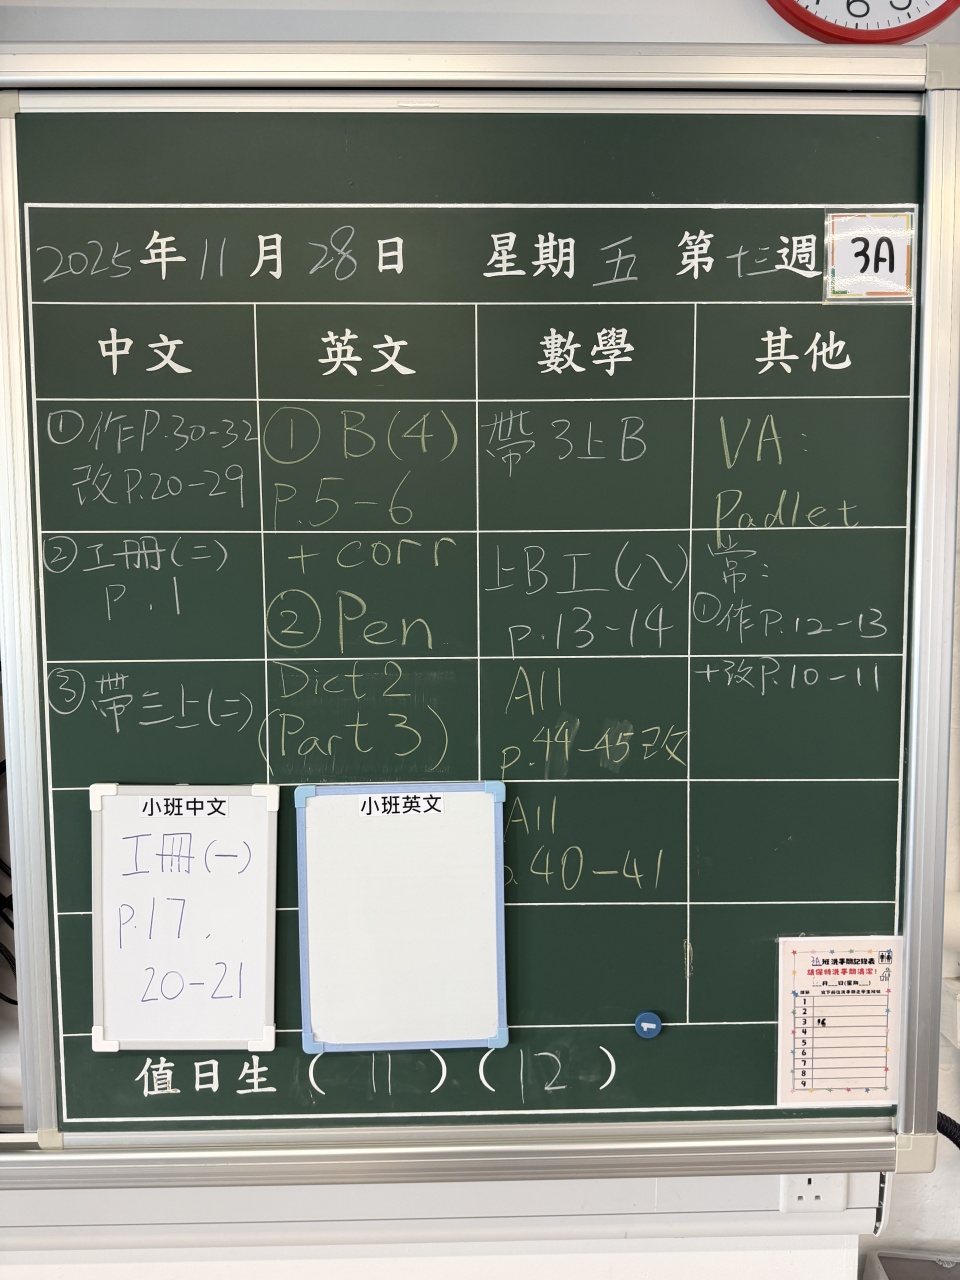 2025年11月28日 星期五 第十三週 3A
中文
①作P.30-32
改P.20-29
②工冊(二)
p.1
③帶三上(二)
英文
①B(4)
p.5-6
+corr
②Pen
Dict 2
(Part 3)
數學
帶3上B
上B工(八)
p.13-14
A11
p.44-45改
A11
p.40-41
其他
VA:
Padlet
常:
①作P.12-13
+改P.10-11
小班中文
工冊(一)
p.17,
20-21
小班英文
1
值日生(11)(12)
3A班洗手間記錄表
請保持洗手間清潔!
月 日(星期 )
1
2
3 16
4
5
6
7
8
9